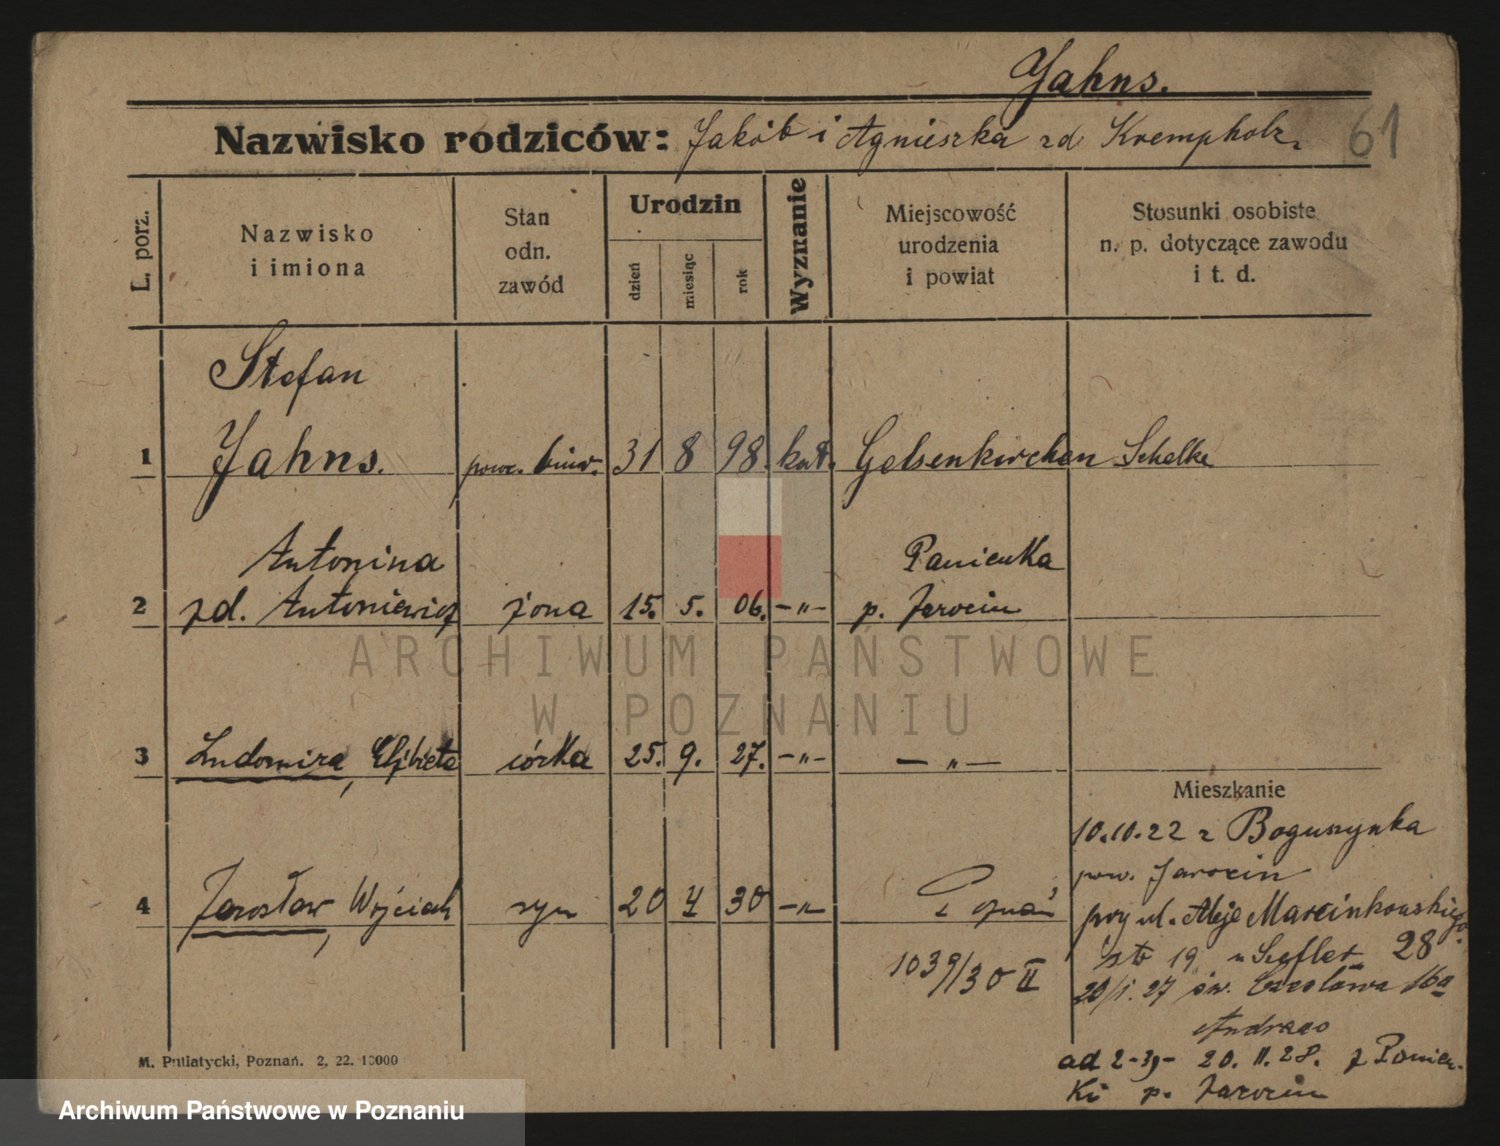 Jahns.
Nazwisko rodziców: Jakób i Agnieszka zd. Krempholz. 61
L. porz.
Nazwisko i imiona
Stan odn. zawód
Urodzin
dzień
miesiąc
rok
Wyznanie
Miejscowość urodzenia i powiat
Stosunki osobiste n. p. dotyczące zawodu i t. d.
Stefan
1 Jahns. biur. 31 8 98 kat. Gelsenkirchen Schalke
Antonina Panienka
2 zd. Antoniewicz żona 15. 5. 06. -„- p. Jarocin
3 Ludomira, Elżbieta córka 25. 9. 27. -„- -„-
Mieszkanie
10.10.22 z Boguszynka
pow. Jarocin
4 Jarosław, Wojciech syn 20 4 30 -„- Poznań
przy ul. Aleje Marcinkowskiego
19 u 28
1039/30 II
20/1.27 św. Czesława 16a
ad 2-3)- 20. 11. 28. z Panien-
ki p. Jarocin
M. Putiatycki, Poznań. 2, 22. 10000
ARCHIWUM PAŃSTWOWE
W POZNANIU
Archiwum Państwowe w Poznaniu